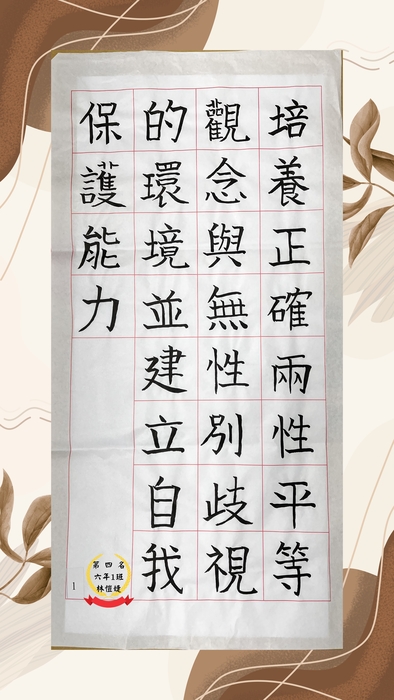 培養正確兩性平等
觀念與無性別歧視
的環境並建立自我
保護能力
第四名
六年1班
林愷婕
1